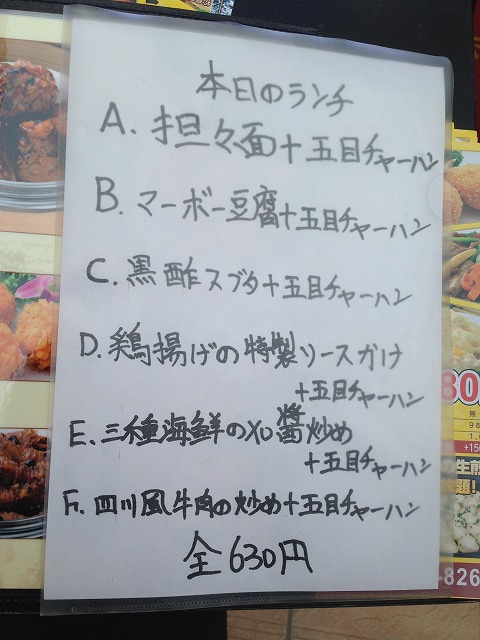 本日のランチ
A. 担々面+五目チャーハン
B. マーボー豆腐+五目チャーハン
C. 黒酢スブタ+五目チャーハン
D. 鶏揚げの特製ソースがけ
+五目チャーハン
E. 三種海鮮のXO醤炒め
+五目チャーハン
F. 四川風牛肉の炒め+五目チャーハン
全630円